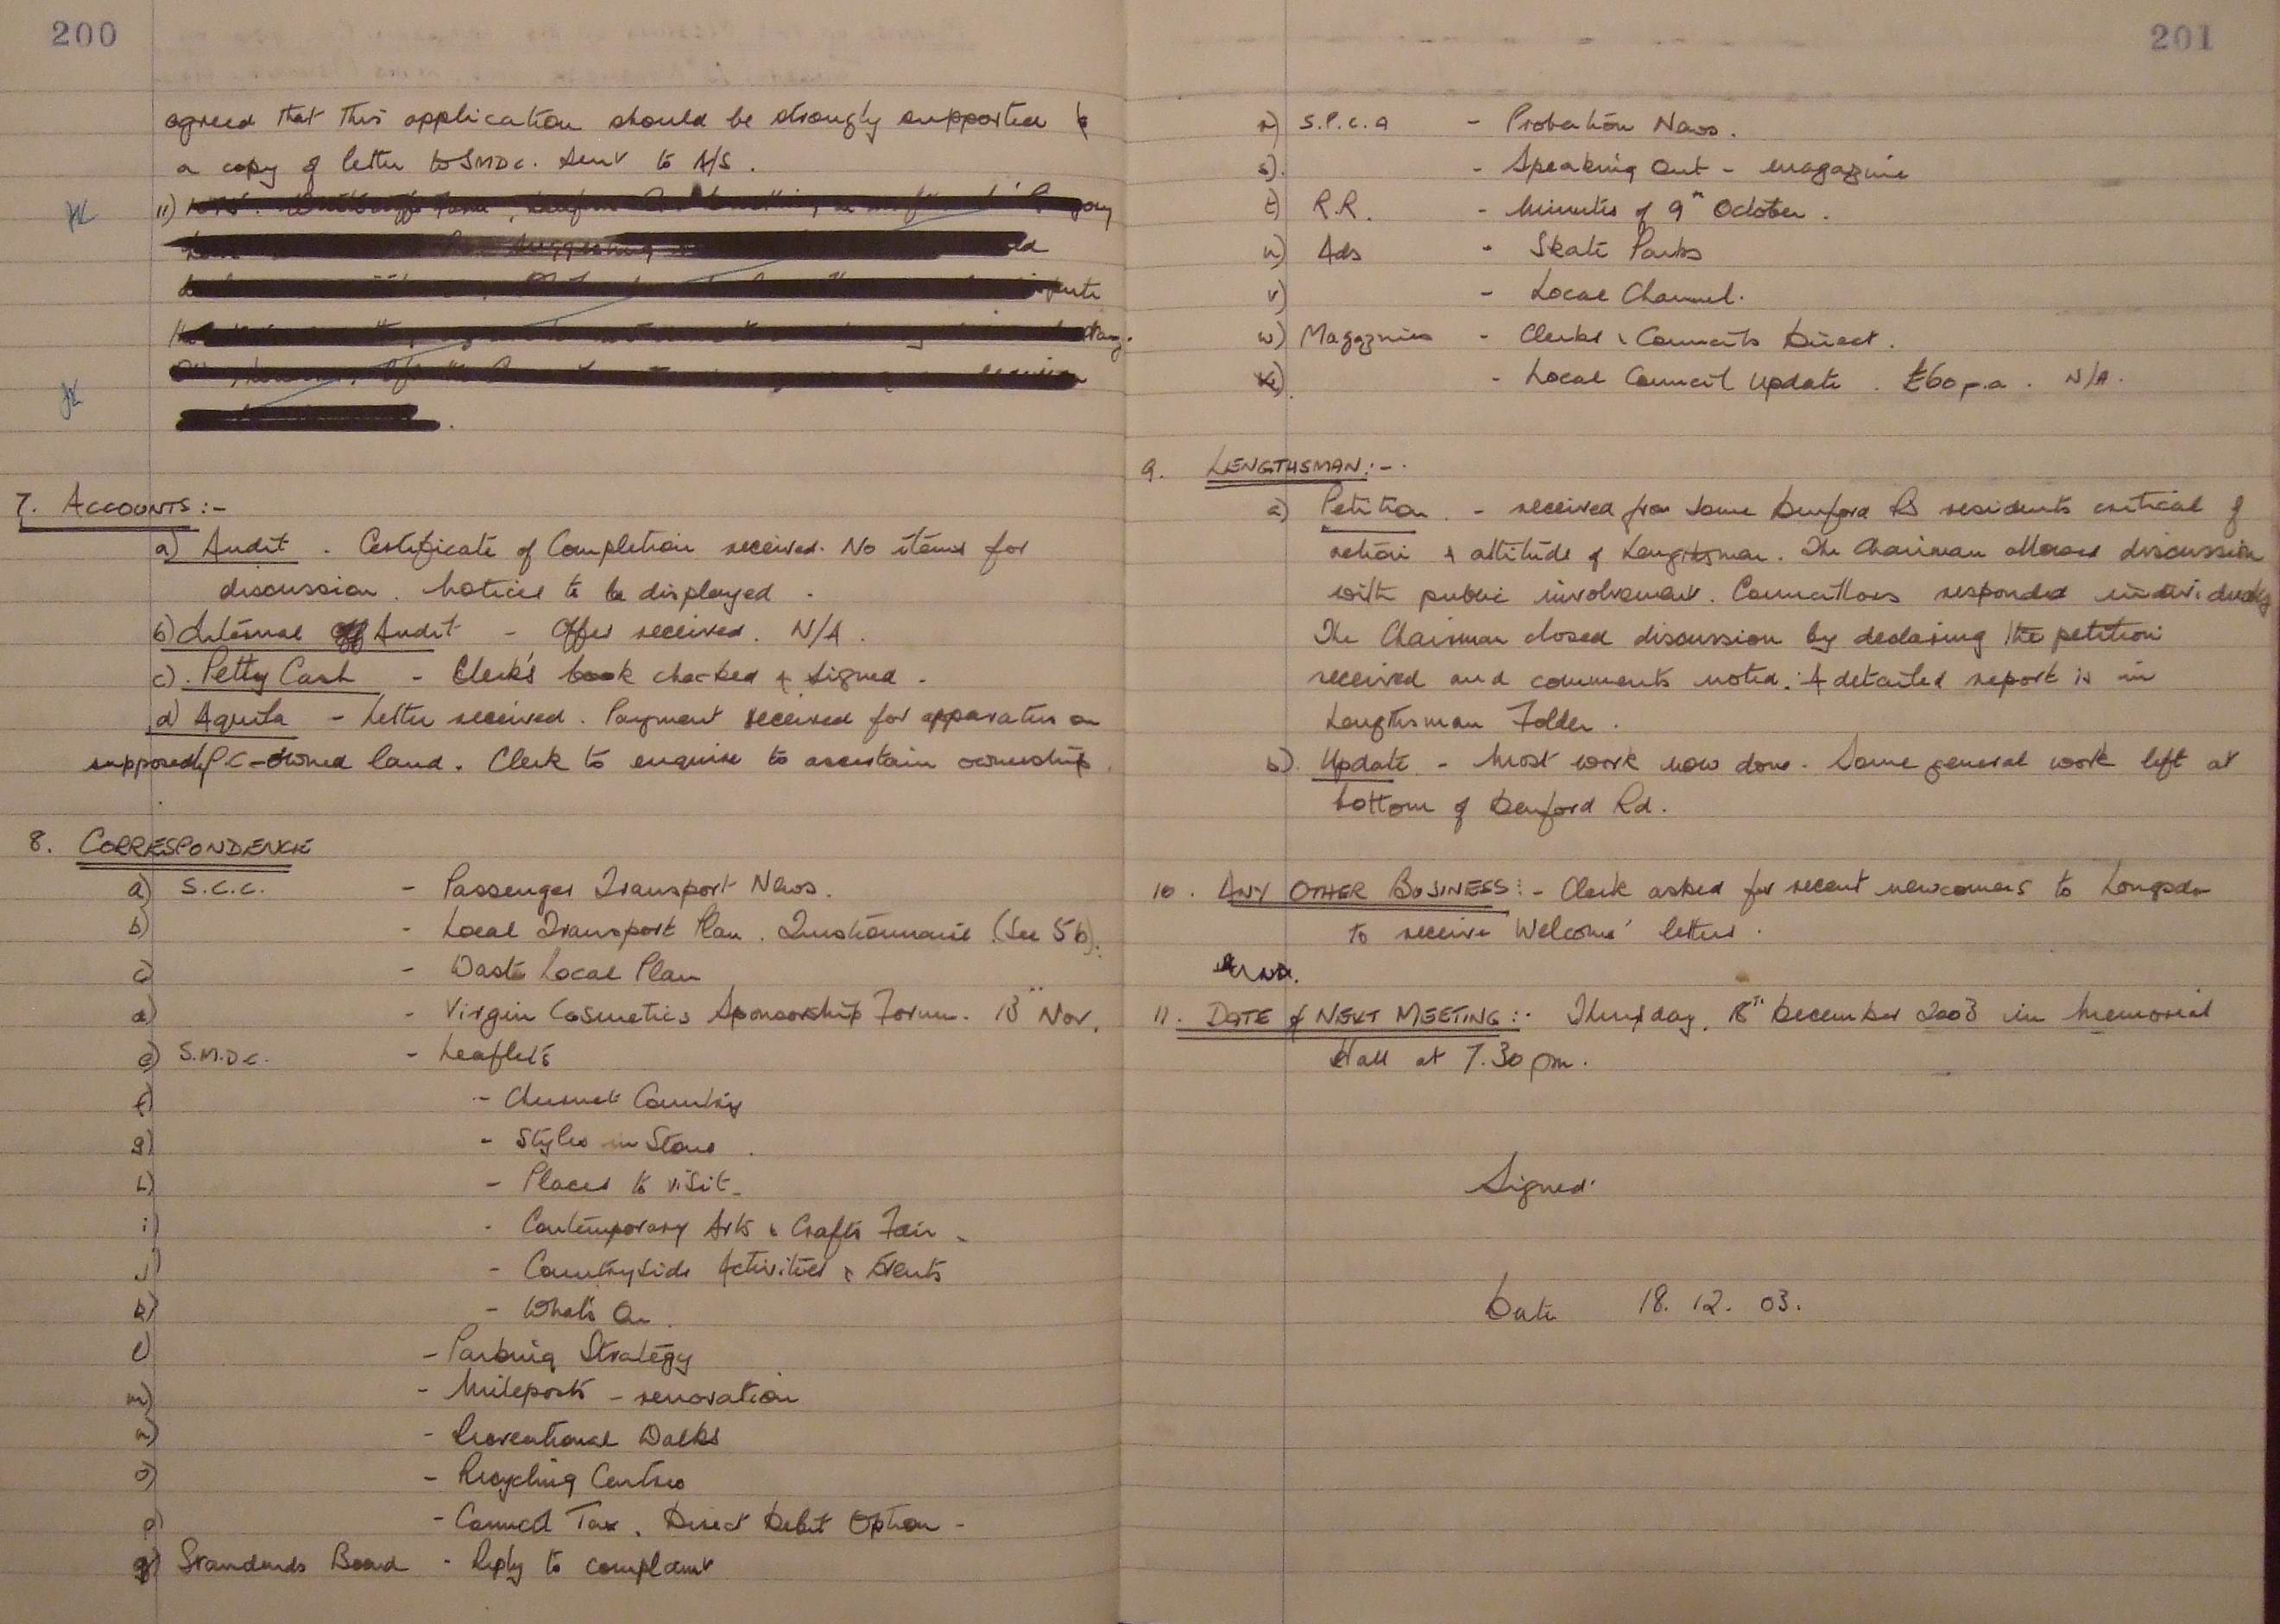 200
agreed that this application should be strongly supported &
a copy of letter to SMDC. sent to A/S.
11)
7. ACCOUNTS :-
a) Audit - Certificate of Completion received. No items for
discussion. Notices to be displayed.
b) Internal Audit - Offer received. N/A.
c) Petty Cash - Clerk's book checked & signed.
d) Aquila - Letter received. Payment received for apparatus on
supposedly P.C-owned land. Clerk to enquire to ascertain ownership.
8. CORRESPONDENCE
a) S.C.C. - Passenger Transport News.
b) - Local Transport Plan. Questionnaire (See 5b).
c) - Waste Local Plan
d) - Virgin Cosmetics Sponsorship Forum. 13th Nov.
e) S.M.D.C. - Leaflets
f) - Churnet Country
g) - Styles in Stone.
h) - Places to visit.
i) - Contemporary Arts & Crafts Fair.
j) - Countryside Activities & Events
k) - What's On.
l) - Parking Strategy
m) - Mileposts - renovation
n) - Recreational Walks
o) - Recycling Centres
p) - Council Tax. Direct Debit Option -
q) Standards Board - Reply to complaint
201
r) S.P.C.A - Probation News.
s). - Speaking Out - magazine
t) R.R. - Minutes of 9th October.
u) Ads - Skate Parks
v) - Local Channel.
w) Magazines - Clerks & Councils Direct.
x). - Local Council Update. £60 p.a. N/A.
9. LENGTHSMAN:-
a) Petition. - received from some Denford Rd residents critical of
action & attitude of Lengthsman. The Chairman allowed discussion
with public involvement. Councillors responded individually
The Chairman closed discussion by declaring the petition
received and comments noted. A detailed report is in
Lengthsman Folder.
b). Update - Most work now done. Some general work left at
bottom of Denford Rd.
10. ANY OTHER BUSINESS:- Clerk asked for recent newcomers to Longsdon
to receive 'Welcome' letters.
11. DATE of NEXT MEETING:- Thursday, 18th December 2003 in Memorial
Hall at 7.30 pm.
Signed
Date 18. 12. 03.